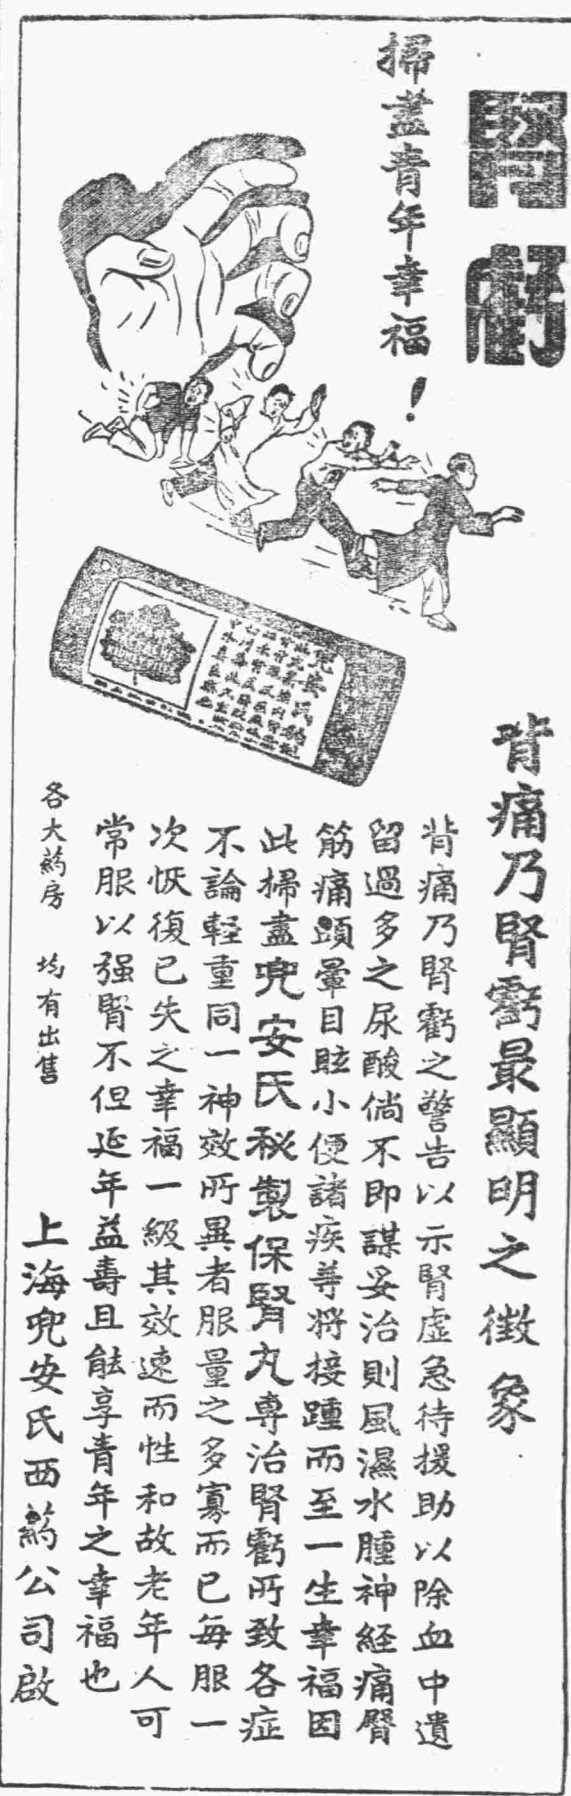 腎虧
掃盡青年幸福！
背痛乃腎虧最顯明之徵象
背痛乃腎虧之警告以示腎虛急待援助以除血中遺
留過多之尿酸倘不即謀妥治則風濕水腫神経痛臂
筋痛頭暈目眩小便諸疾等将接踵而至一生幸福因
此掃盡兜安氏秘製保腎丸専治腎虧所致各症
不論軽重同一神效所異者服量之多寡而已每服一
次恢復已失之幸福一級其效速而性和故老年人可
常服以强腎不但延年益壽且能享青年之幸福也
各大葯房 均有出售
上海兜安氏西葯公司啟
兜安氏